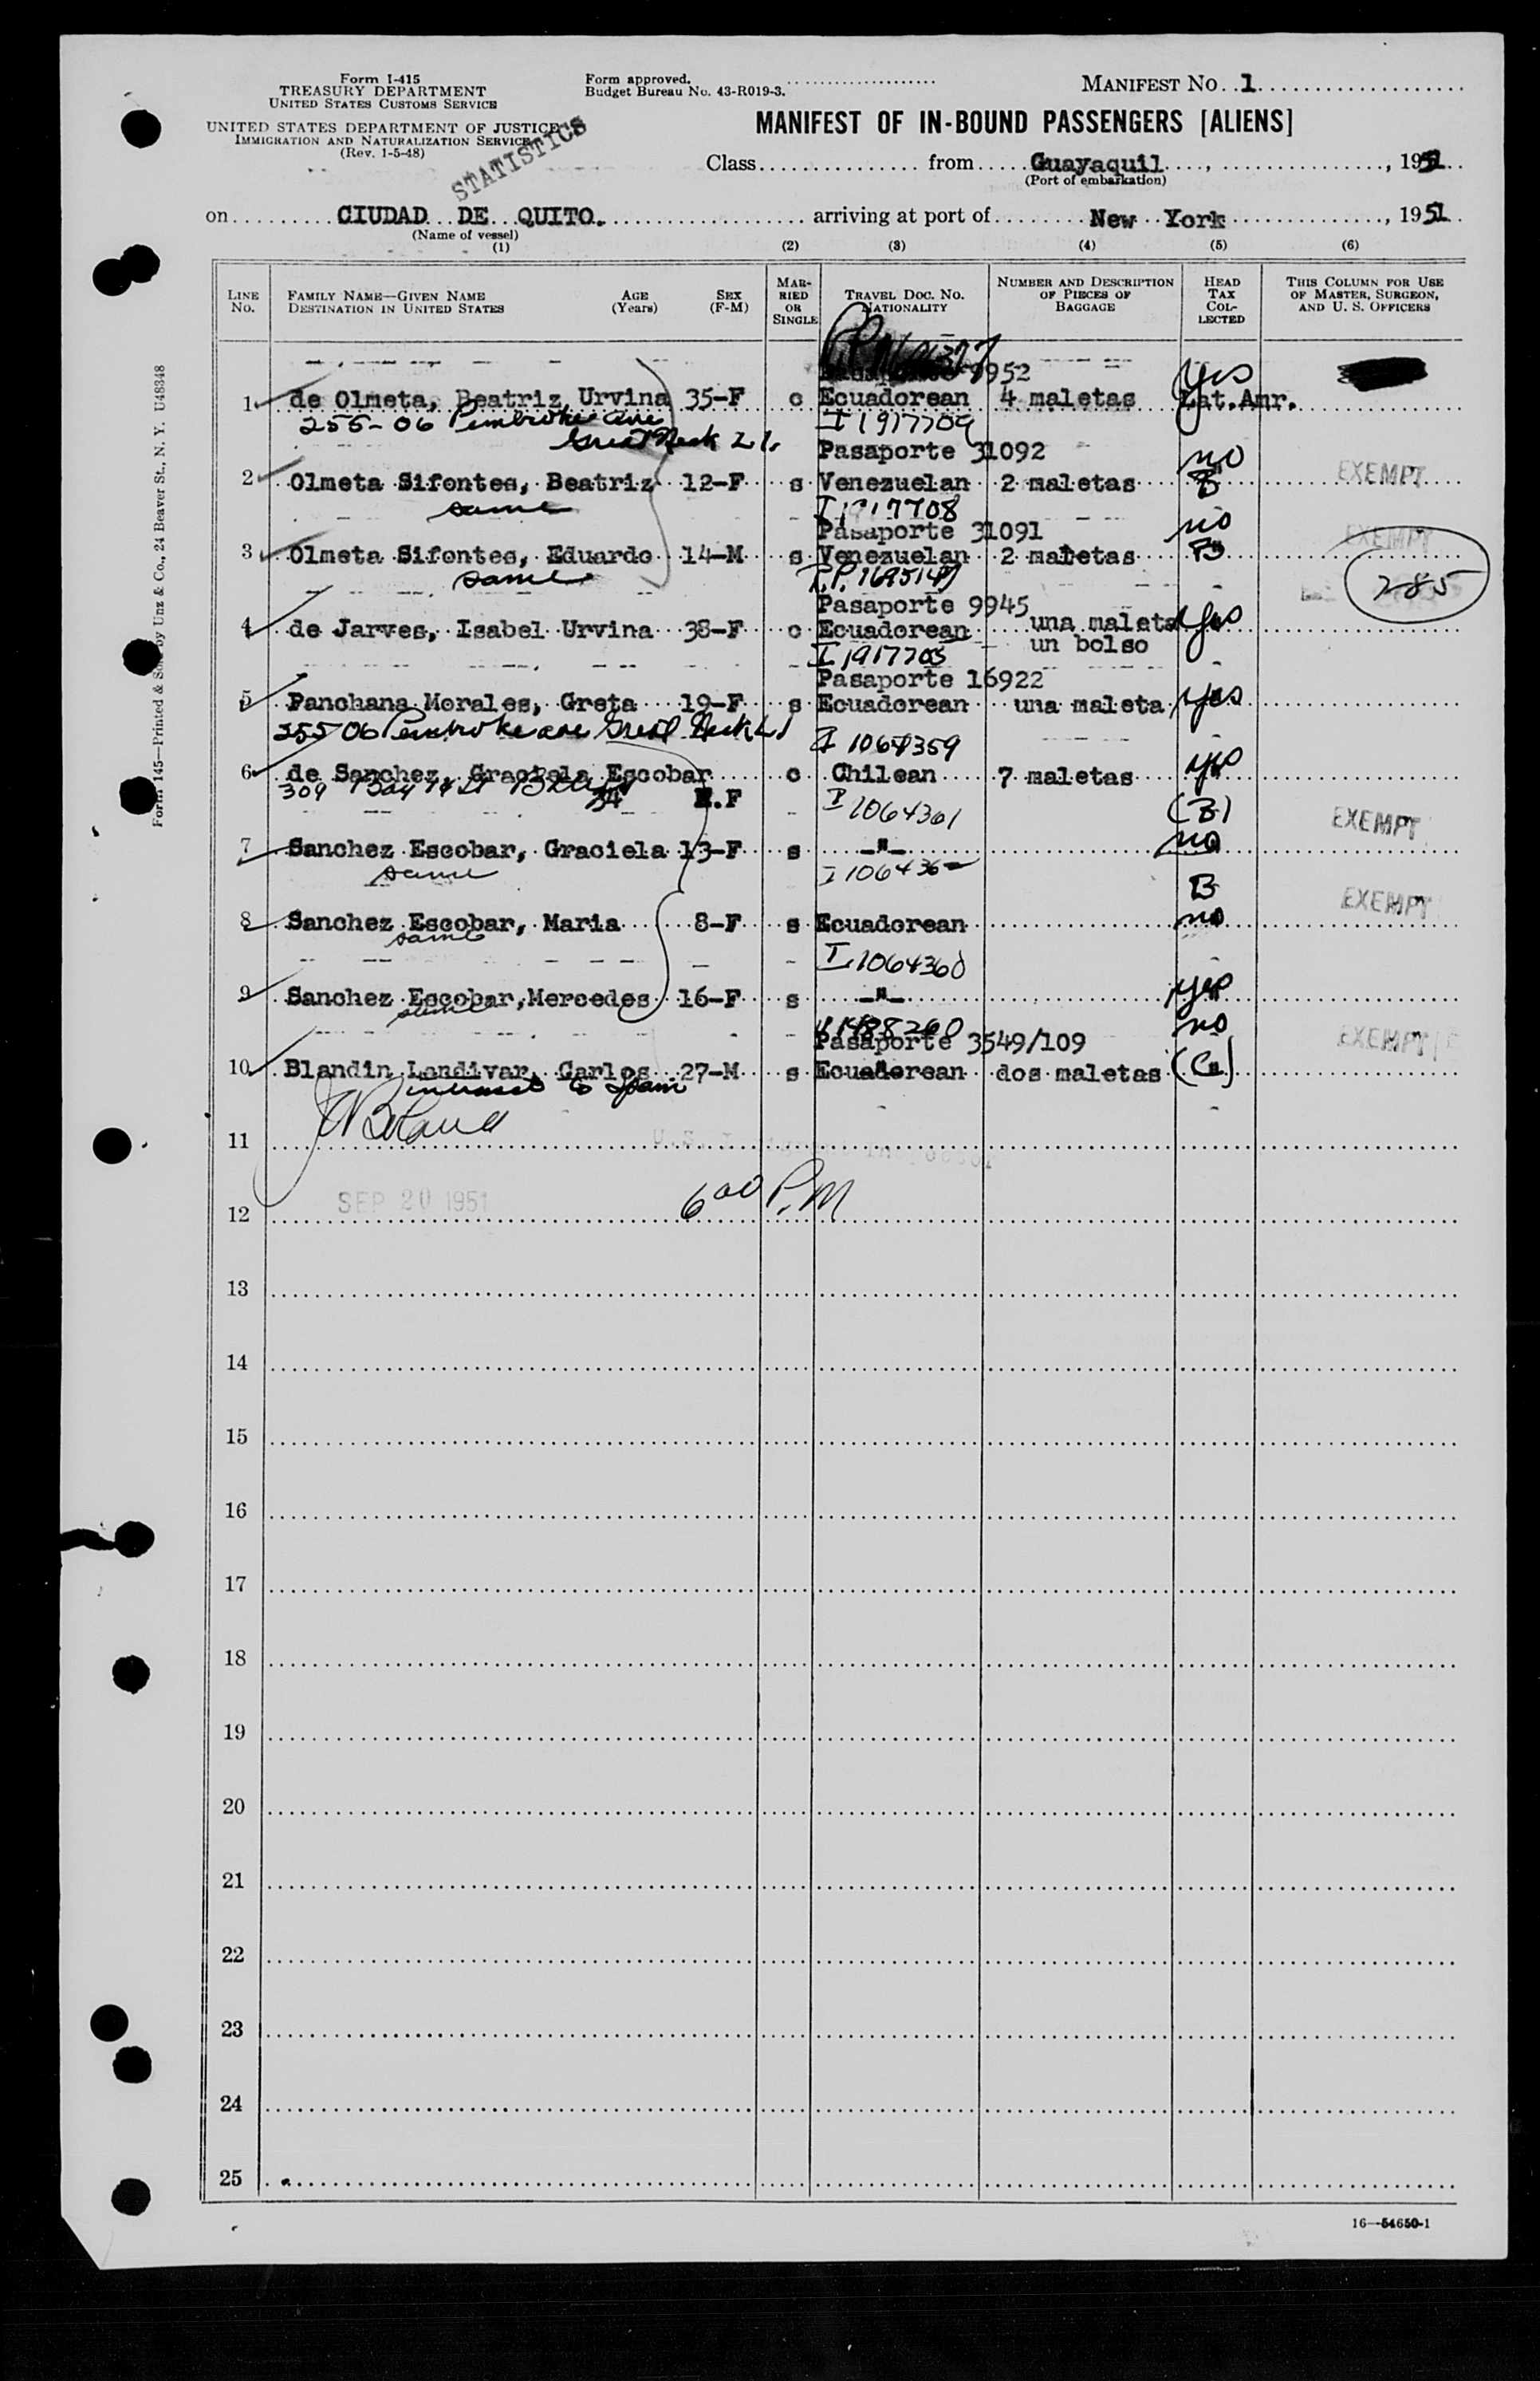 Form I-415
TREASURY DEPARTMENT
UNITED STATES CUSTOMS SERVICE
UNITED STATES DEPARTMENT OF JUSTICE
IMMIGRATION AND NATURALIZATION SERVICE
(Rev. 1-5-48)
STATISTICS
Form approved.
Budget Bureau No. 43-R019-3.
MANIFEST NO. 1
MANIFEST OF IN-BOUND PASSENGERS [ALIENS]
Class from Guayaquil, , 1951
(Port of embarkation)
on CIUDAD DE QUITO. arriving at port of New York , 1951
(Name of vessel)
(1) (2) (3) (4) (5) (6)
LINE NO. FAMILY NAME—GIVEN NAME DESTINATION IN UNITED STATES AGE (Years) SEX (F-M) MARRIED OR SINGLE TRAVEL DOC. NO. NATIONALITY NUMBER AND DESCRIPTION OF PIECES OF BAGGAGE HEAD TAX COLLECTED THIS COLUMN FOR USE OF MASTER, SURGEON, AND U. S. OFFICERS
9952 yes
1 de Olmeta, Beatriz Urvina 35-F c Ecuadorean 4 maletas Lat.Amr.
255-06 Pembroke ave I 1917709
Great Neck L.I.
Pasaporte 31092 no
2 Olmeta Sifontes, Beatriz 12-F s Venezuelan 2 maletas B EXEMPT
same I 1917708
Pasaporte 31091 no EXEMPT
3 Olmeta Sifontes, Eduardo 14-M s Venezuelan 2 maletas B
same 285
Pasaporte 9945 una maleta yes
4 de Jarves, Isabel Urvina 38-F c Ecuadorean un bolso
I 1917705
Pasaporte 16922
5 Panchana Morales, Greta 19-F s Ecuadorean una maleta yes
255 06 Pembroke ave Great Neck L I
I 1064359
6 de Sanchez, Graciela Escobar c Chilean 7 maletas yes
309 Bay 14 St 34 F
I 1064361 (B)
7 Sanchez Escobar, Graciela 13-F s -"- no EXEMPT
same I 1064362
B
8 Sanchez Escobar, Maria 8-F s Ecuadorean no EXEMPT
same
I 1064360
9 Sanchez Escobar,Mercedes 16-F s -"- yes
same
1488260 no
Pasaporte 3549/109 EXEMPT
10 Blandin Landivar, Carlos 27-M s Ecuadorean dos maletas
intransit to Spain
11
12 SEP 20 1951 6 00 P.M
13
14
15
16
17
18
19
20
21
22
23
24
25
16—54650-1
Form 145—Printed & Sold by Unz & Co., 24 Beaver St., N. Y. U48348